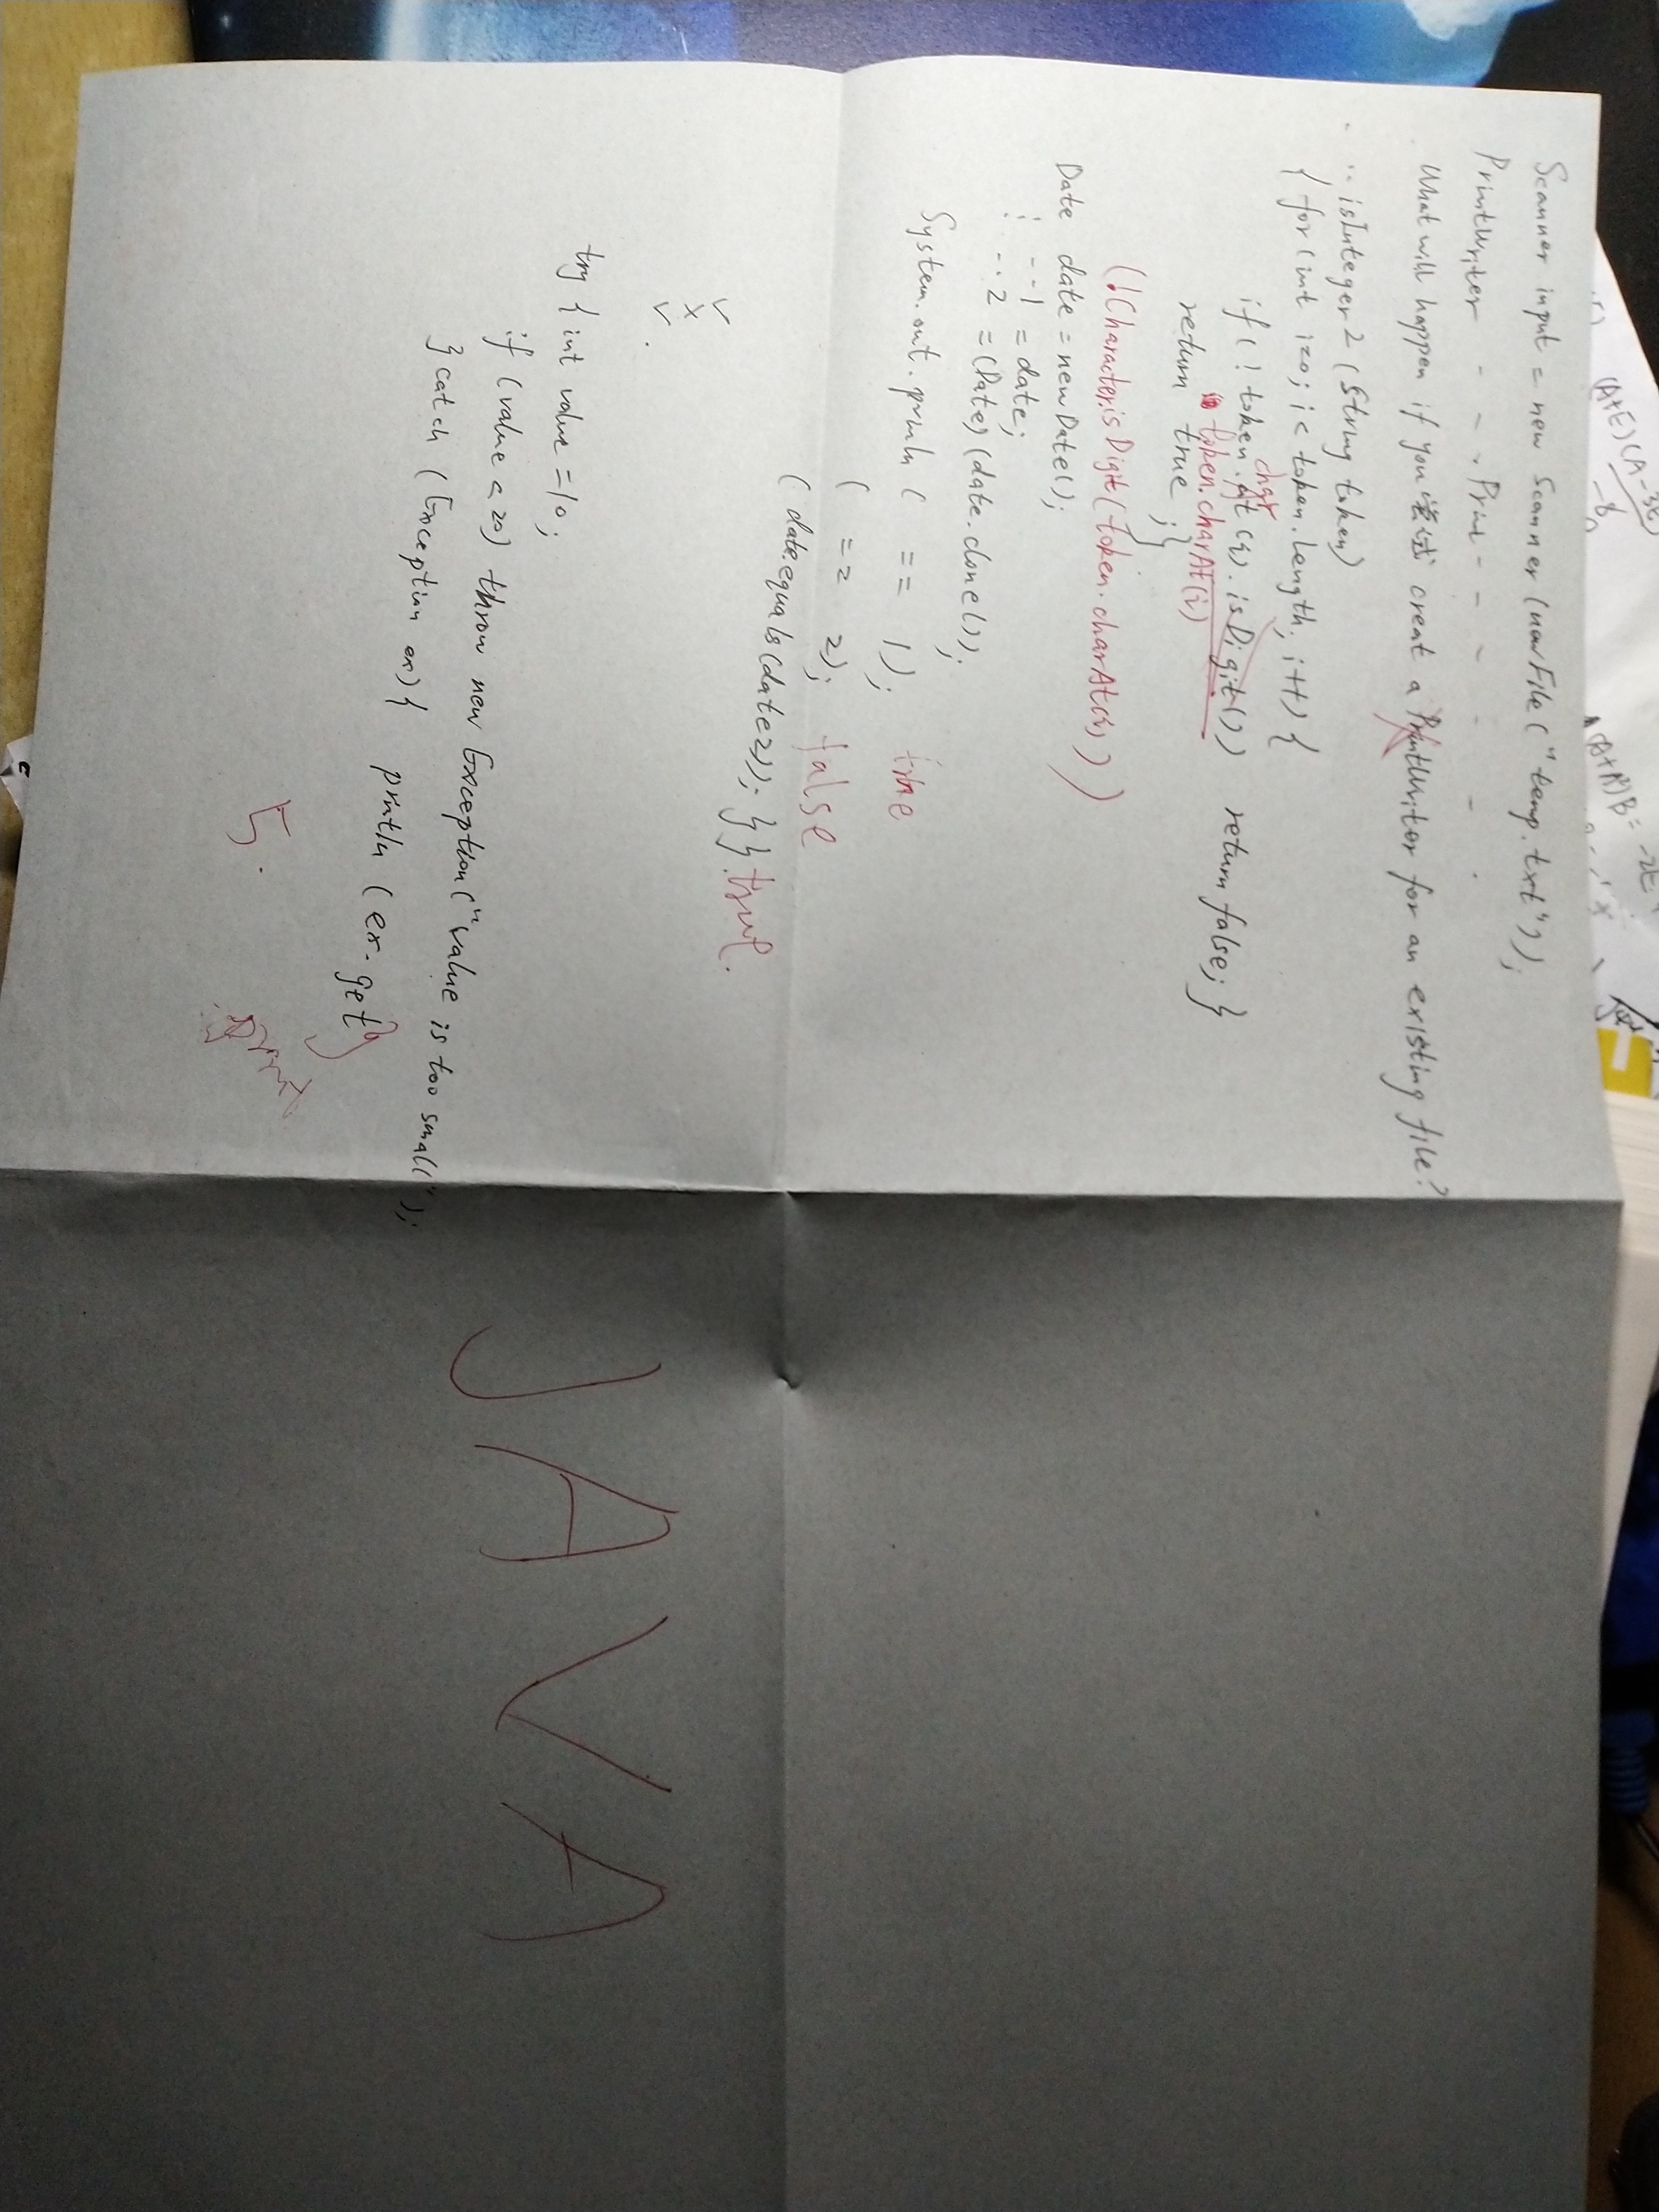 (A+E)(A-3E)
-8
(A+A²)B = -2E
Scanner input = new Scanner (new File ("temp.txt"));
PrintWriter - - . Print - - - - - .
What will happen if you 尝试 creat a PrintWriter for an existing file?
. .. isInteger2 (String token)
{ for (int i=0; i< token.length; i++) {
char
if ( ! token.at (i). isDigit()) return false; }
token.charAt(i)
return true ;}
(!Character.isDigit(token.charAt(i)))
Date date = new Date();
⋮ --1 = date;
--2 = (Date) (date.clone());
System.out.println ( == 1); true
( == 2); false
( date.equals(date2)); }} true.
✓
×
✓ .
try { int value =10;
if (value < 20) throw new Exception("value is too small");
} catch (Exception ex) { println (ex. get
5.
print
JAVA